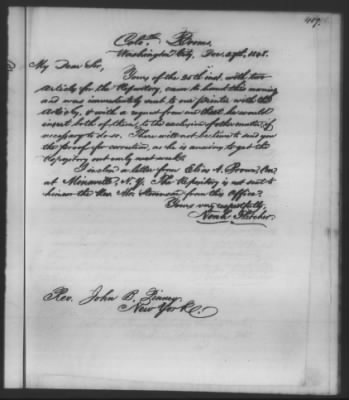 489.
Colo. Rooms,
Washington City, Dec. 27th, 1848.
My Dear Sir,
Yours of the 25th inst. with two
articles for the Repository, came to hand this morning
and was immediately sent to our printer with the
articles, & with a request from me that he would
insert both of them, to the exclusion of other matter, if
necessary to do so. There will not be time to send you
the proof for correction, as he is anxious to get the
Repository out early next week.
I enclose a letter from Elias A.
at N.Y. The Repository is not sent to
him or the Rev. Mr. from this Office.
Yours very respectfully,
Noah Fletcher.
Rev. John B. Pinney,
New York.